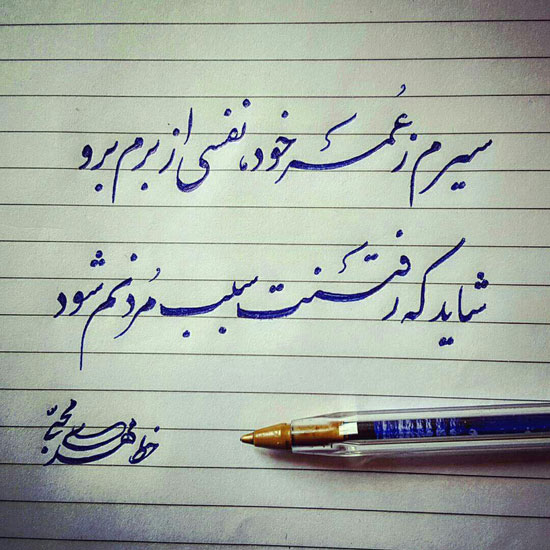 سیرم ز عُمر خود، نفسی از برم برو
شاید که رفتنت سبب مُردنم شود
خط مهدی